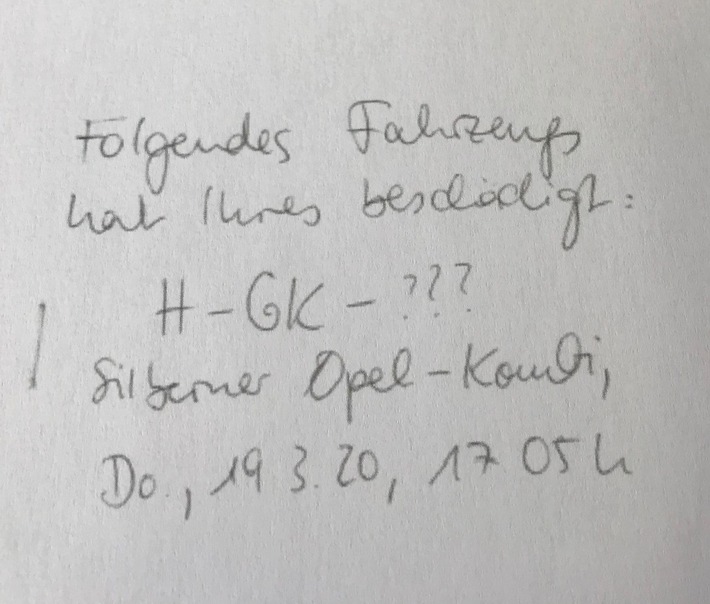 Folgendes Fahrzeug
hat Ihres beschädigt:
H-GK-???
Silberner Opel-Kombi,
Do., 19 3.20, 17 05 h